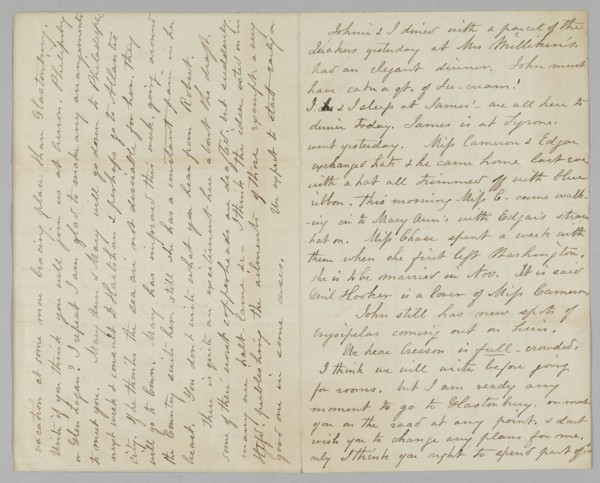 Johnie & I dined with a parcel of the
Quakers yesterday at Mrs Milliken's.
had an elegant dinner. John must
have eaten a qt. of Ice-cream!
J & I sleep at James' - are all here to
dinner today. James is at Tyrone.
went yesterday. Miss Cameron & Edgar
exchanged hats & he came home last eve
with a hat all trimmed off with blue
ribbon. This morning Miss C- came walk-
-ing in to Mary Ann's with Edgar's straw
hat on. Miss Chase spent a week with
them when she first left Washington.
she is to be married in Nov. It is said
Genl Hooker is a lover of Miss Cameron
John still has new spots of
erysipelas coming out on him.
We hear Cresson is full-crowded.
I think we will write before going
for rooms. but I am ready any
moment to go to Glastonbury. or meet
you on the road at any point. I dont
wish you to change any plans for me.
only I think you ought to spend part of
vacation at some more bracing place than Glastonbury.
Write if you think you will join us at Cresson. Philipsburg
or Glen Logan? I repeat I am glad to make any arrangements
to meet you. Mary Ann & Mary will go down to Philadelphia
next week & consult Dr Hartshorn & perhaps go to Atlantic
City. if he thinks the sea air not desirable for her. they
will go to Conn. Mary has improved this week, going around
the Country suits her. still she has a constant pain in her
breast. You don't write what you hear from Robert.
There is quite an excitement here about the draft.
some of their worst copperheads are drafted. but suddenly
many are half lame &c- I think the idea acted on in
publishing the ailments of those exempt. a very
good one in some cases. We expect to start early a